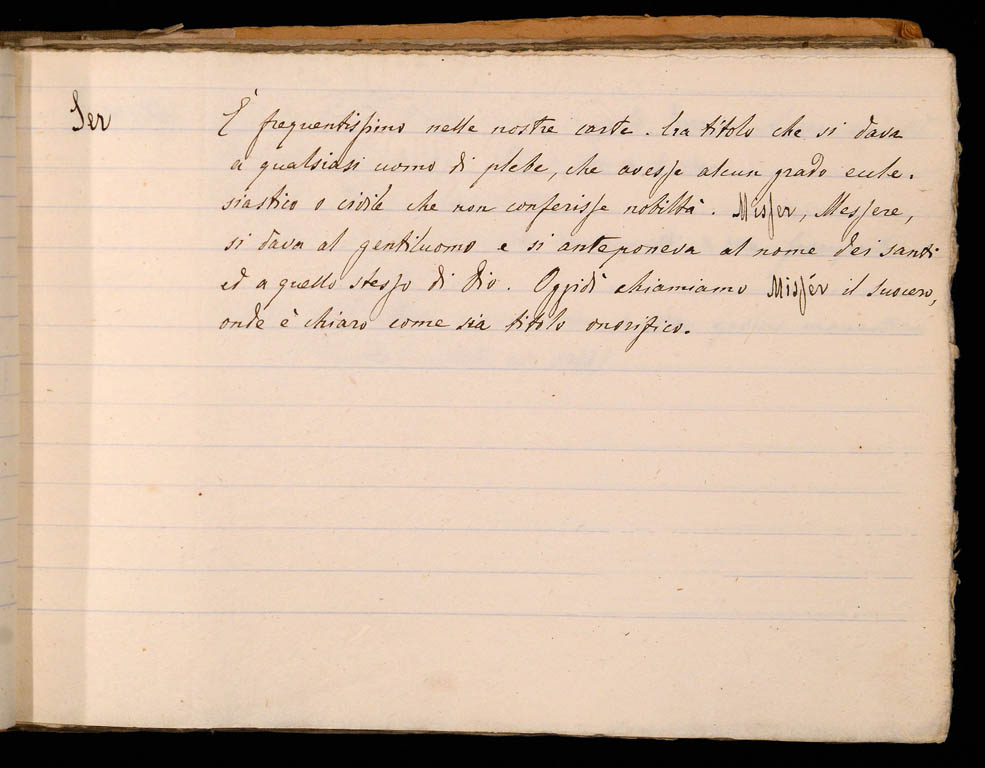 Ser
È frequentissimo nelle nostre carte. Era titolo che si dava
a qualsiasi uomo di plebe, che avesse alcun grado eccle-
siastico o civile che non conferisse nobiltà. Misser, Messere,
si dava al gentiluomo e si anteponeva al nome dei santi
ed a quello stesso di Dio. Oggidì chiamiamo Missér il suocero,
onde è chiaro come sia titolo onorifico.